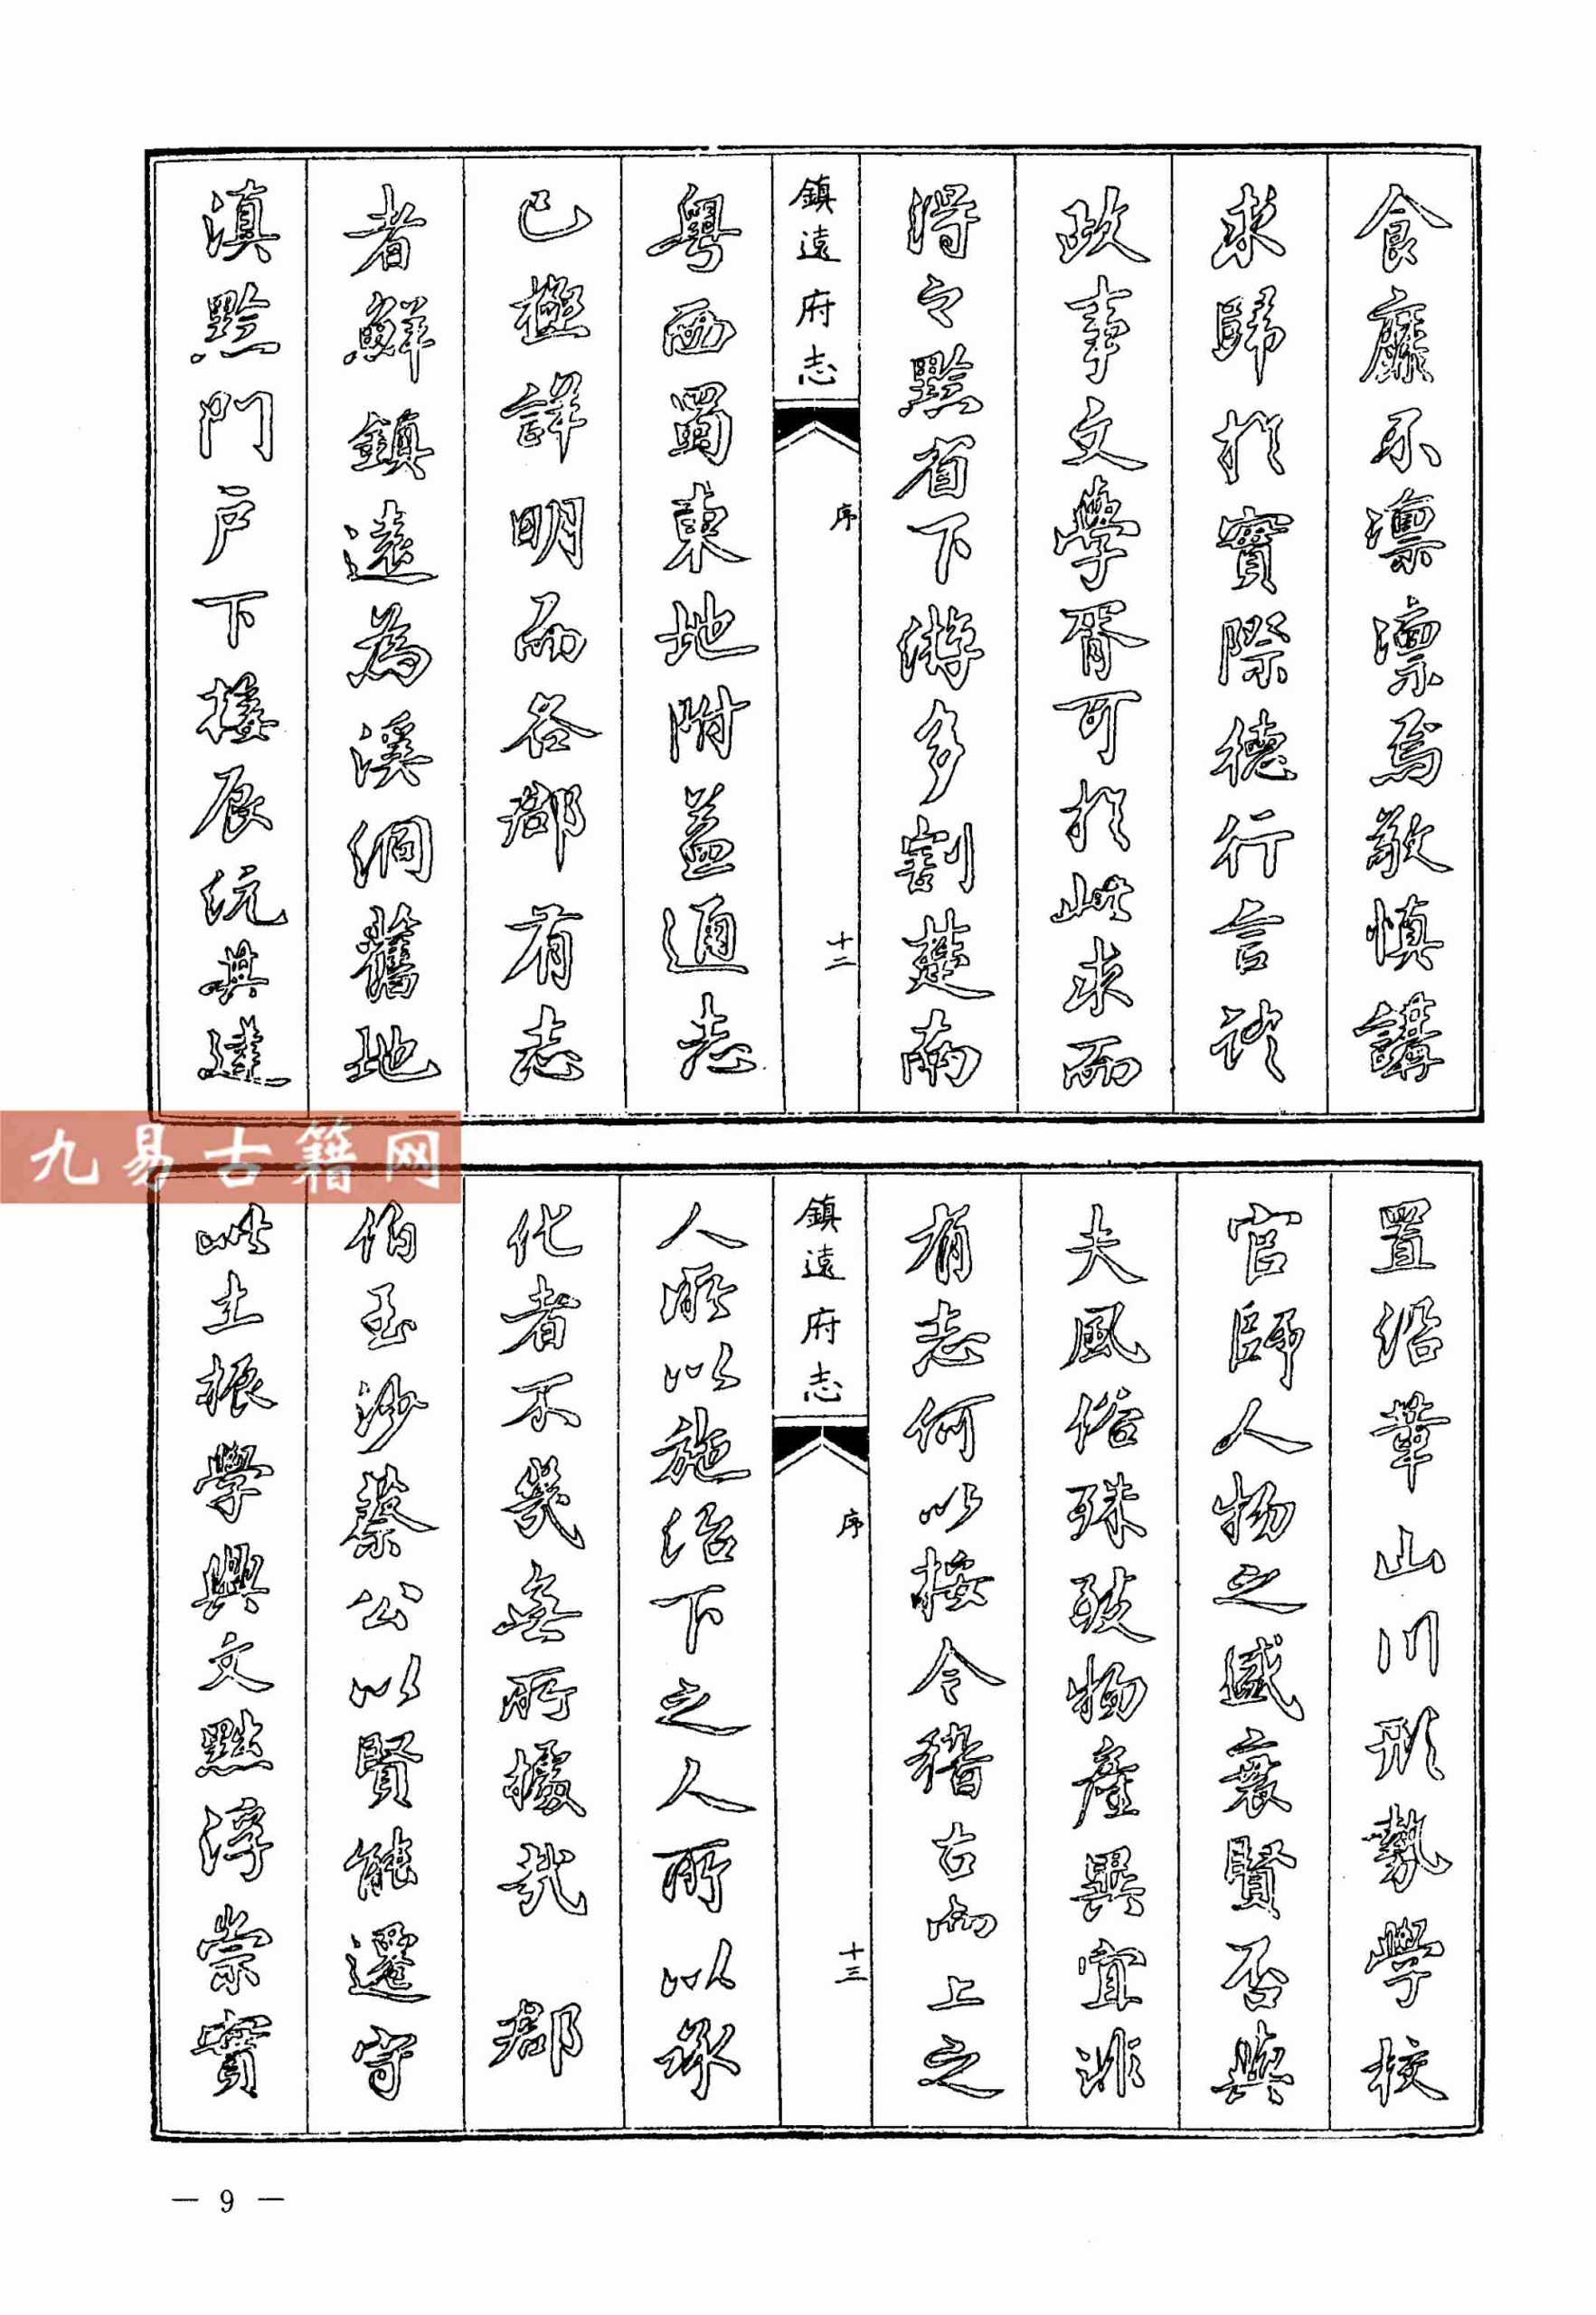 食靡不凜凜焉敬慎講
求歸於實際德行言語
政事文學胥可於此求而
得之黔省下游多割楚南
鎮遠府志 序 十二
粵西蜀東地附益通志
已極詳明而各郡有志
者鮮鎮遠為溪洞舊地
滇黔門戶下接辰沅其建
置沿革山川形勢學校
官師人物之盛衰賢否與
夫風俗殊致物產異宜非
有志何以按今稽古而上之
鎮遠府志 序 十三
人所以施治下之人所以承
化者不幾無所據哉 郡
伯玉沙蔡公以賢能遷守
此土振學興文黜浮崇實
九易古籍网
— 9 —